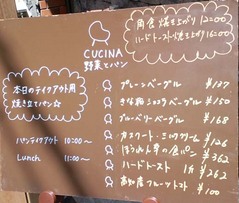 CUCINA
野菜とパン
角食 焼き上がり 12:00
ハードトースト焼き上がり 16:00
本日のテイクアウト用
焼き立てパン☆
パンテイクアウト 10:00〜
Lunch 11:00〜
プレーンベーグル ¥137
ベーグル ¥150
ブルーベリーベーグル ¥168
カスクート・ミルククリーム ¥126
ほうれん草の食パン ¥362
ハードトースト 1斤 ¥262
高知産フルーツトマト ¥100